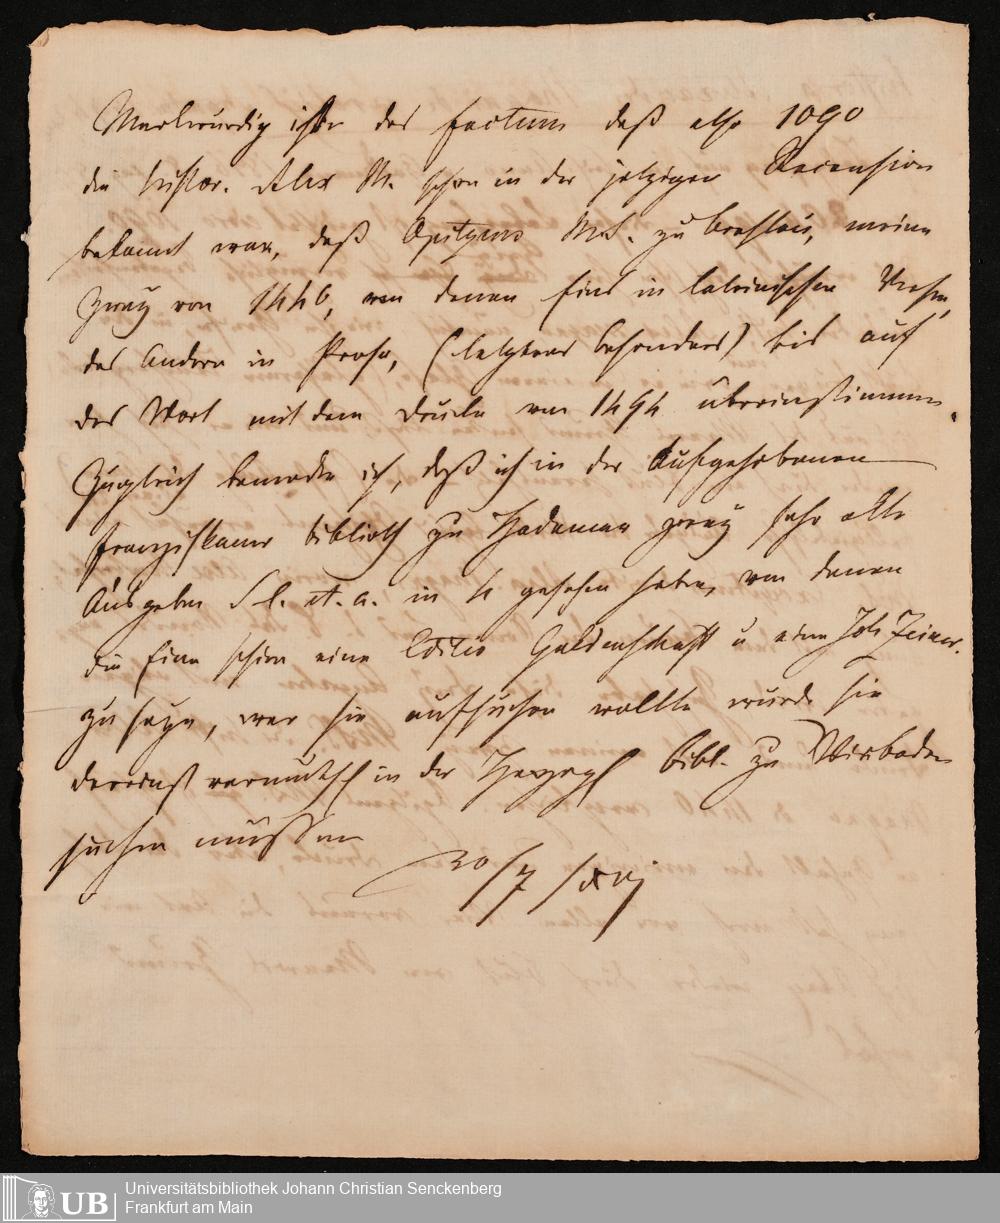 Merkwürdig ist das factum daß also 1090
die histor. Alex M. schon in der jetzigen Recension
bekannt war, daß Opitzens MS. zu Breslau, meine
zwey von 1446, von denen Eins in lateinischen Versen,
das Andere in Prosa, (letzteres besonders) bis auf
das Wort mit dem Drucke von 1494 übereinstimmen.
Zugleich bemerke ich, daß ich in der Aufgehobenen
Franziskaner Biblioth zu Hadamar zwey sehr alte
Ausgaben S l. et. a. in 4 gesehen habe, von denen
die Eine schien eine Editio Guldenschaff u eine Joh Zeiner.
zu seyn, wer sie aufsuchen wollte würde sie
dereinst vermuthl in der Herzogl Bibl. zu Wisbaden
suchen müssen
30/7
Universitätsbibliothek Johann Christian Senckenberg
Frankfurt am Main
UB